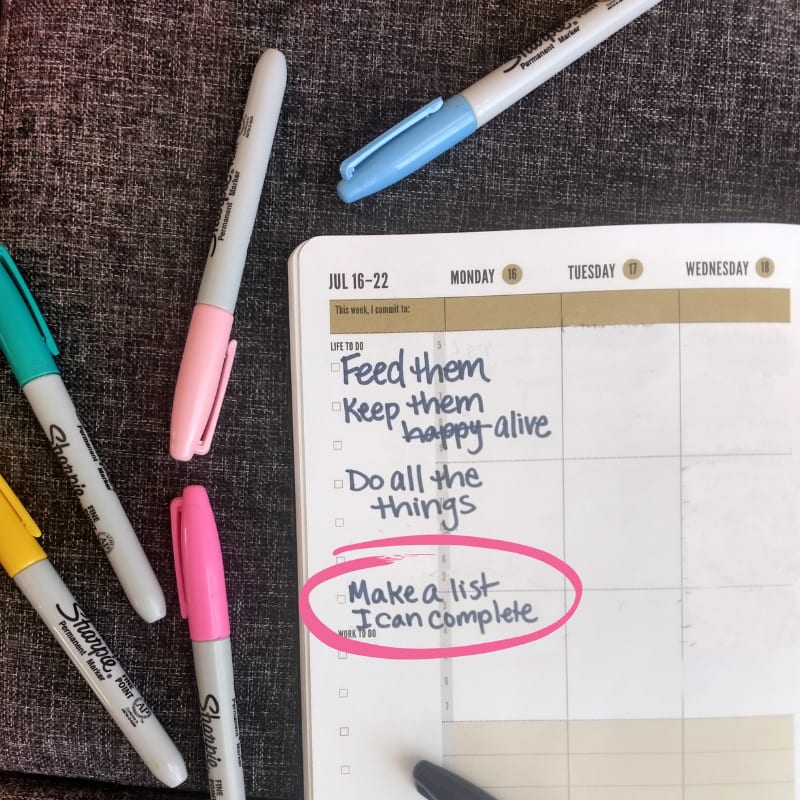 Sharpie
Permanent Marker
Sharpie
Permanent Marker
JUL 16–22
MONDAY 16
TUESDAY 17
WEDNESDAY 18
This week, I commit to:
LIFE TO DO
5
Feed them
Keep them
happy alive
Do all the
things
Make a list
I can complete
WORK TO DO
6
7
Permanent Marker
Sharpie
FINE
AP
Sharpie
Permanent Marker
FINE
POINT
AP
Sharpie
FINE